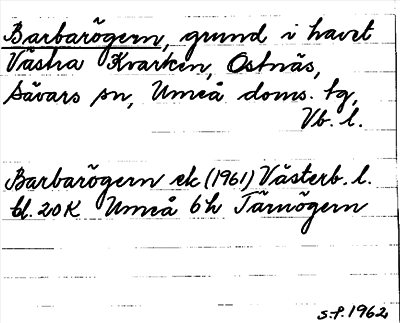 Barbarögern, grund i havet
Västra Kvarken, Ostnäs,
Sävars sn, Umeå doms. tg,
Vb. l.
Barbarögern ek (1961) Västerb. l.
bl. 20K Umeå 6h Tärnögern
s.f. 1962